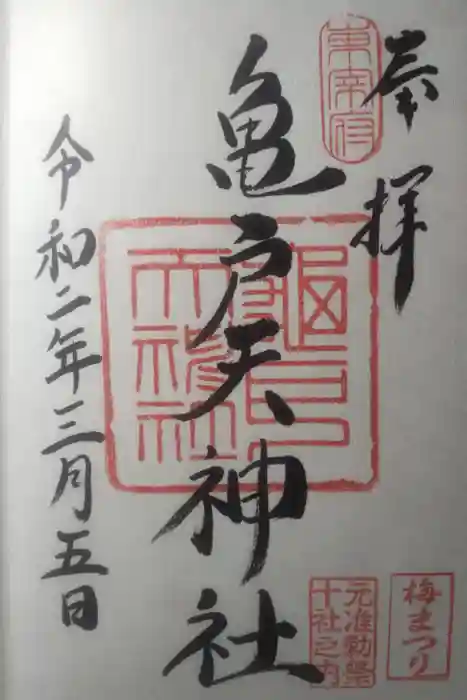 奉拝
東宰府
亀戸天神社
亀戸天神社
令和二年三月五日
梅まつり
元准勅祭
十社之内